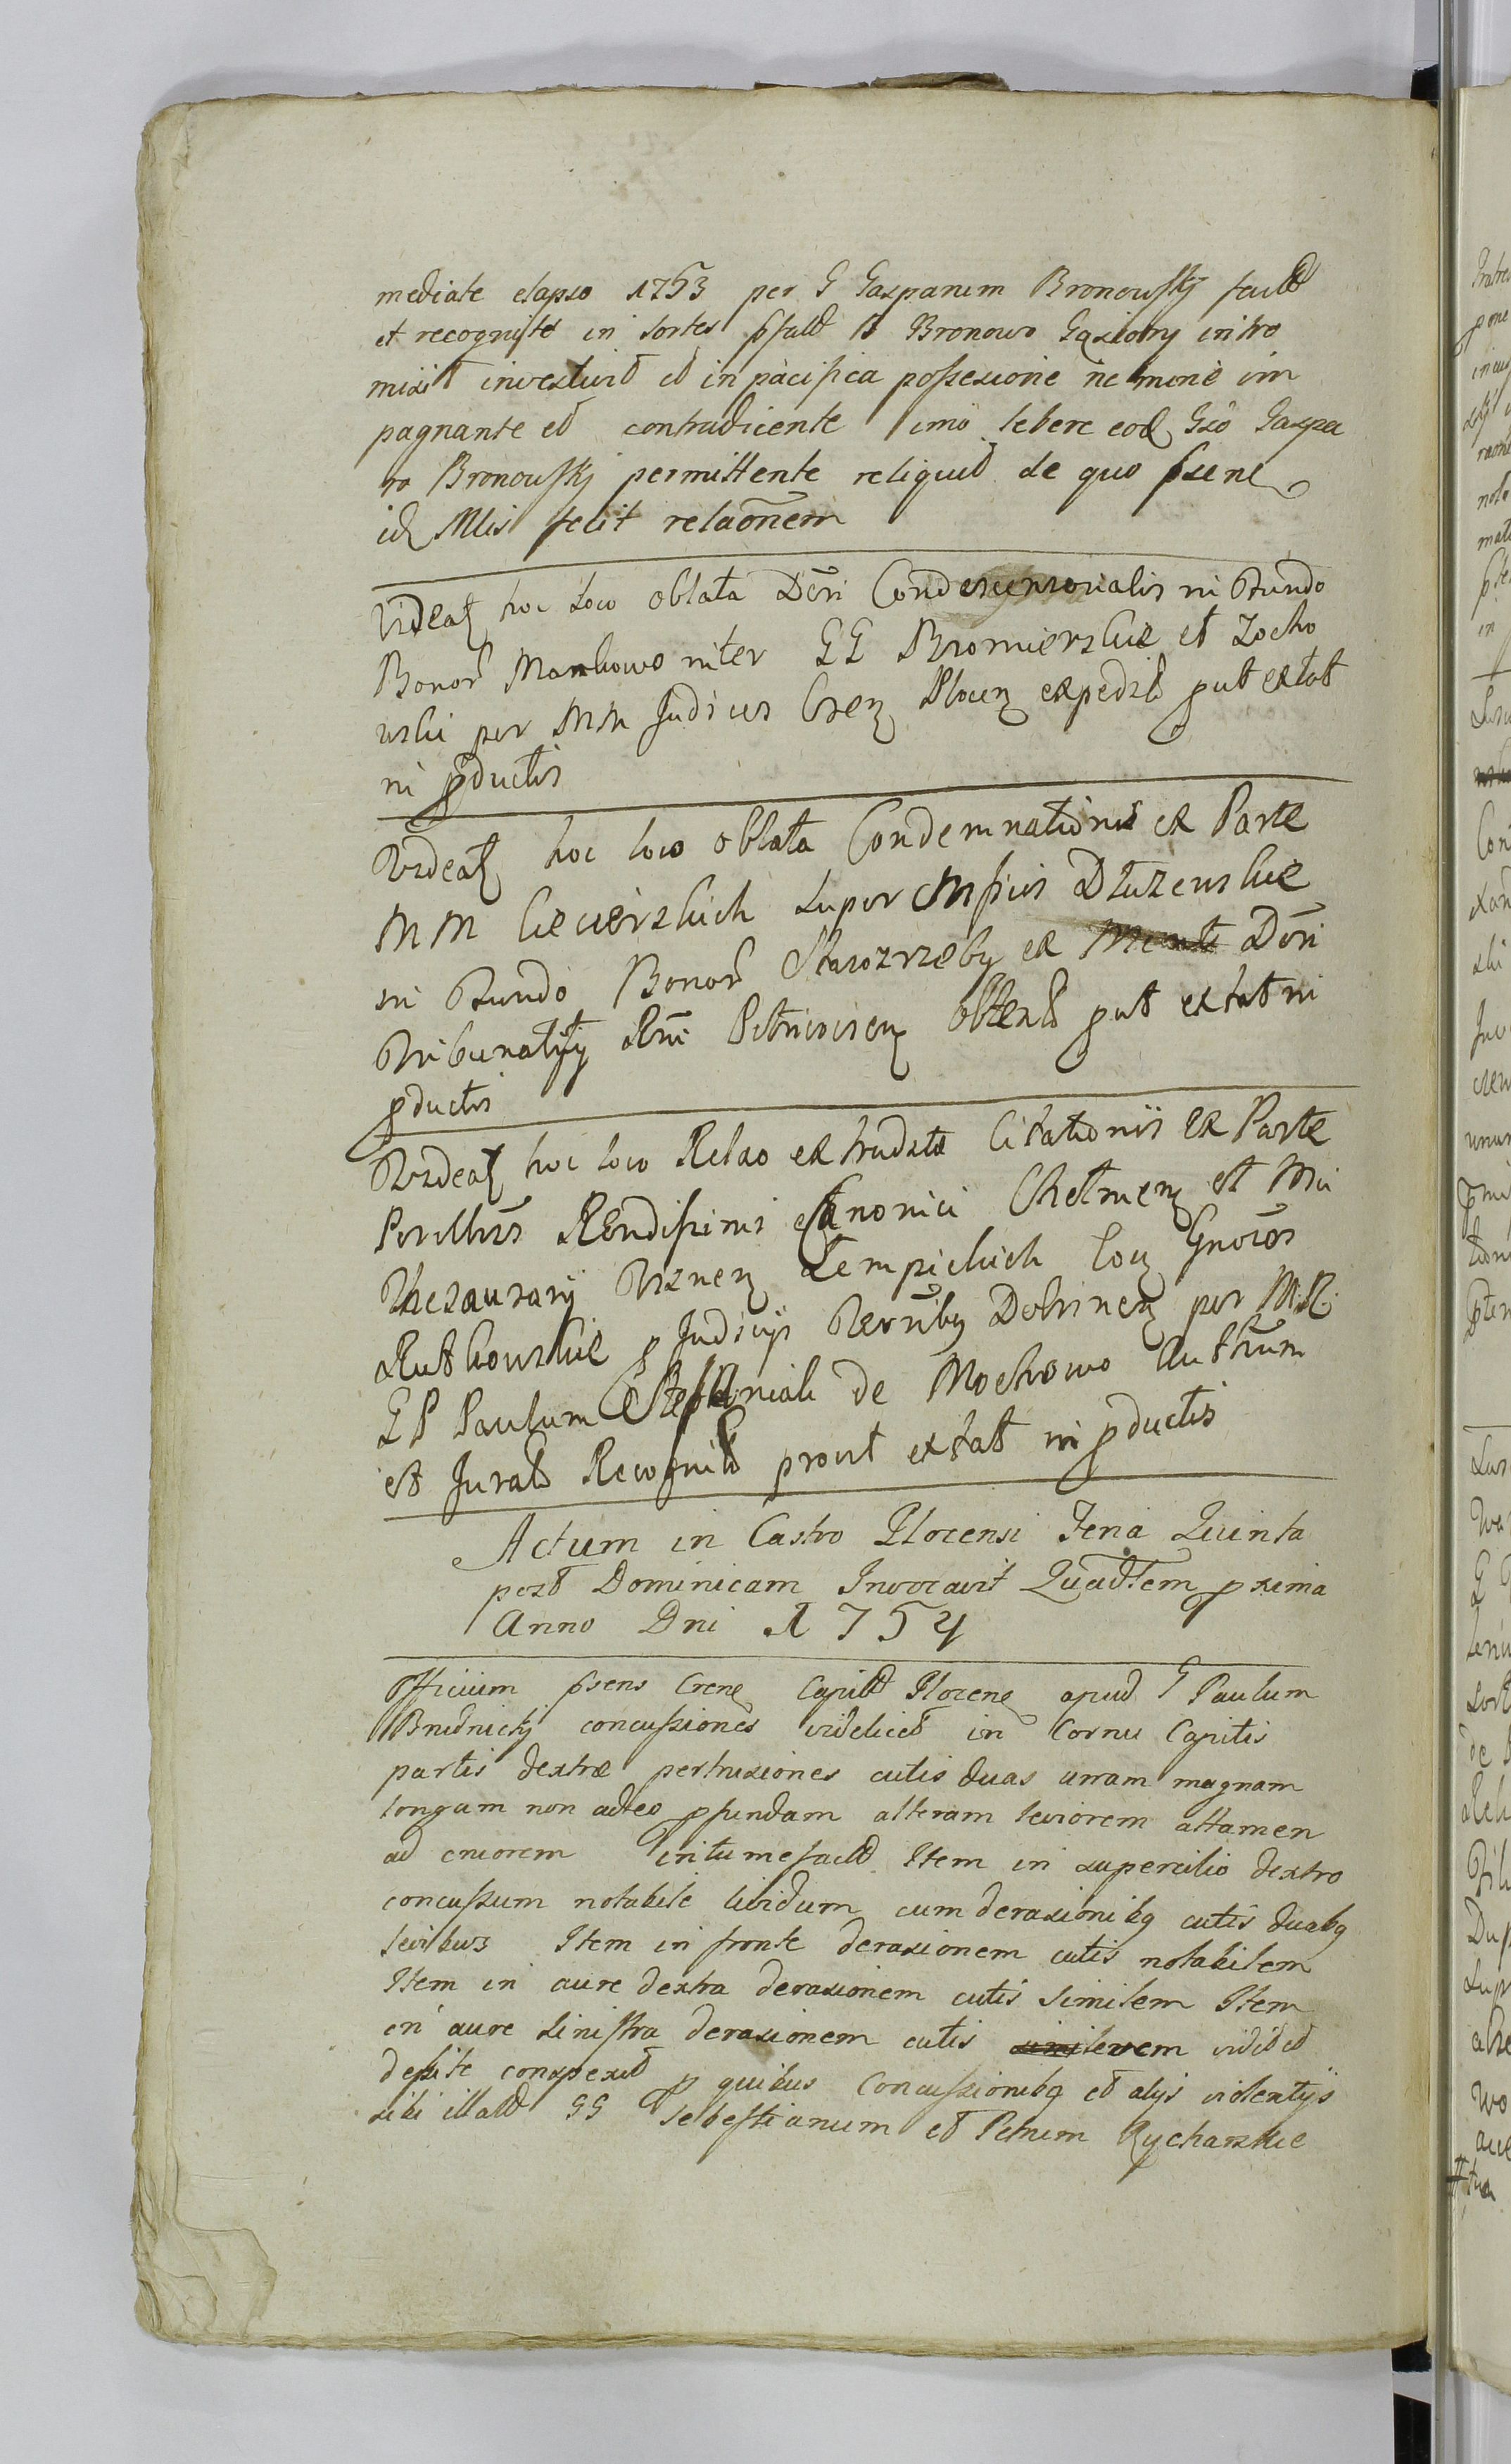 mediate elapso 1753 per G Gasparum Bronowskj fact
et recognite in sortes pfatt B Bronowo Gąsiory intro
misit investivit et in pacifica possesione nemine im
pagnante et contradicente imo lebere eod Gso Gaspa
ro Bronowskj permittente reliquit de quo psene
id Mlis fecit relaonem
Videat hoc Loco oblata Dcri Condescensorialis in Fundo
Bonor Mankowo inter GG Bromierskie et Zocho
wski per MM Judices Cren Plocen expedit put extat
in pductis
Videat hoc loco oblata Condemnationis ex Parte
MM Ciecierskich super Mficis Dłużewskie
in Fundo Bonor Starozrzeby ex Dcri
Tribunality Rni Petricovien obtent put extat in
pductis
Videat hoc loco Relao extradita Citationis ex Parte
Perillris Rendissimi Canonici Chełmen et Mci
Thesaurarij Wiznen Łempickich Con Gnosos
Rutkowskie p Judicijs Terribg Dobrinen per MR
GP Paulum Stephaniak de Mochowo Authum
et Jurat Recognit prout extat in pductis
Actum in Castro Plocensi Feria Quinta
post Dominicam Invocavit Quadtem pxima
Anno Dni 1754
Officium psens Crene Capitt Plocene apud G Paulum
Brudnickj concussiones videlicet in Cornu Capitis
partis dextræ pertusiones cutis duas unam magnam
longam non adteo pfundam alteram leviorem attamen
ad cruorem intumefactt Item in supercilio dextro
concussum notabile lividum cum derasionibg cutis duabg
levibus Item in fronte derasionem cutis notabilem
Item in aure dextra derasionem cutis similem Item
in aure sinistra derasionem cutis levem vidit et
debite conspexit p quibus Concussionibg et alijs violentijs
sibi illatt GG Sebestianum et Petrum Rycharskie